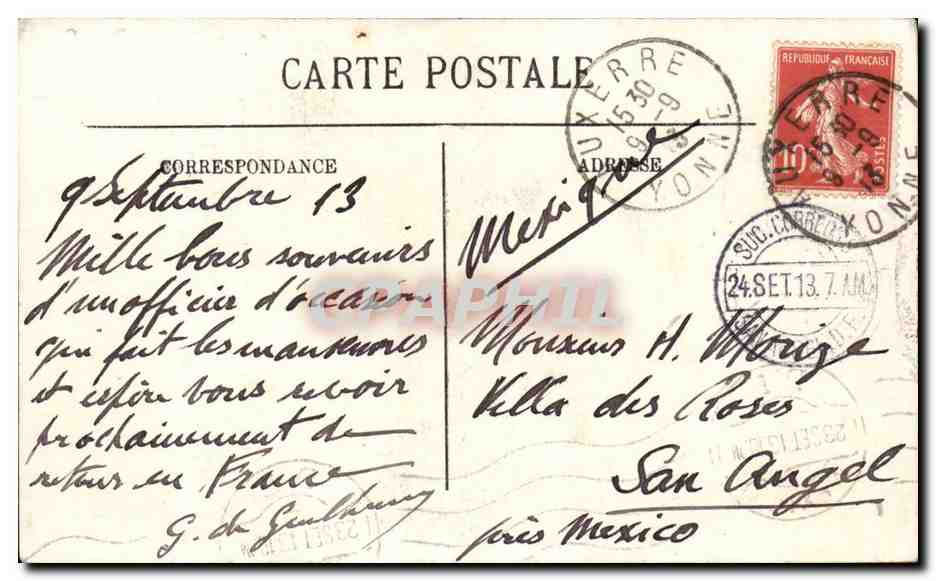 CARTE POSTALE
CORRESPONDANCE
9 Septembre 13
Mille bons souvenirs
d'un officier d'occasion
qui fait les manoeuvres
et espère vous revoir
prochainement de
retour en France
G. de
ADRESSE
Mexique
Monsieur H. Morize
Villa des Roses
San Angel
près Mexico
AUXERRE
15 30
9 -9
13
YONNE
REPUBLIQUE FRANÇAISE
10
POSTES
AUXERRE
15 30
9 -9
13
YONNE
SUC. CORREOS
24.SET.13.7.AM
23 SET 13
23 SET 13
CPAPHIL